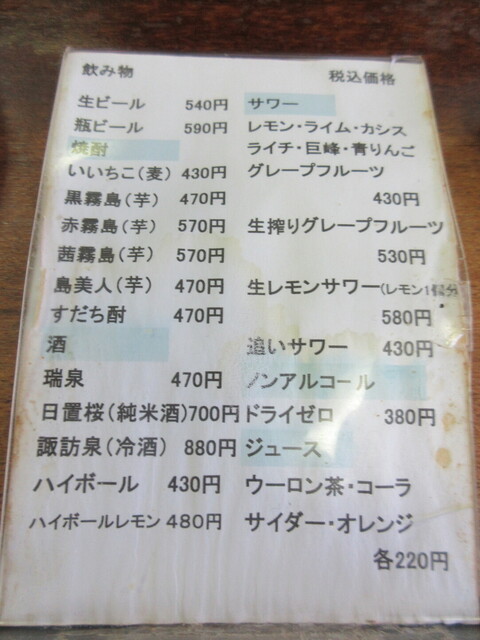 飲み物
税込価格
生ビール 540円
瓶ビール 590円
焼酎
いいちこ(麦) 430円
黒霧島(芋) 470円
赤霧島(芋) 570円
茜霧島(芋) 570円
島美人(芋) 470円
すだち酎 470円
酒
瑞泉 470円
日置桜(純米酒)700円
諏訪泉(冷酒) 880円
ハイボール 430円
ハイボールレモン 480円
サワー
レモン・ライム・カシス
ライチ・巨峰・青りんご
グレープフルーツ
430円
生搾りグレープフルーツ
530円
生レモンサワー(レモン1個分
580円
追いサワー 430円
ノンアルコール
ドライゼロ 380円
ジュース
ウーロン茶・コーラ
サイダー・オレンジ
各220円